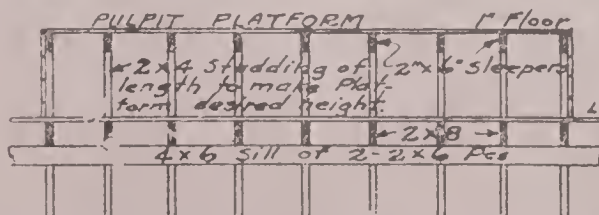 PULPIT PLATFORM
1" Floor
2x4 Studding of
length to make Plat-
form desired height.
2"x6" Sleepers
2x8
4x6 Sill or 2-2x6 Pcs